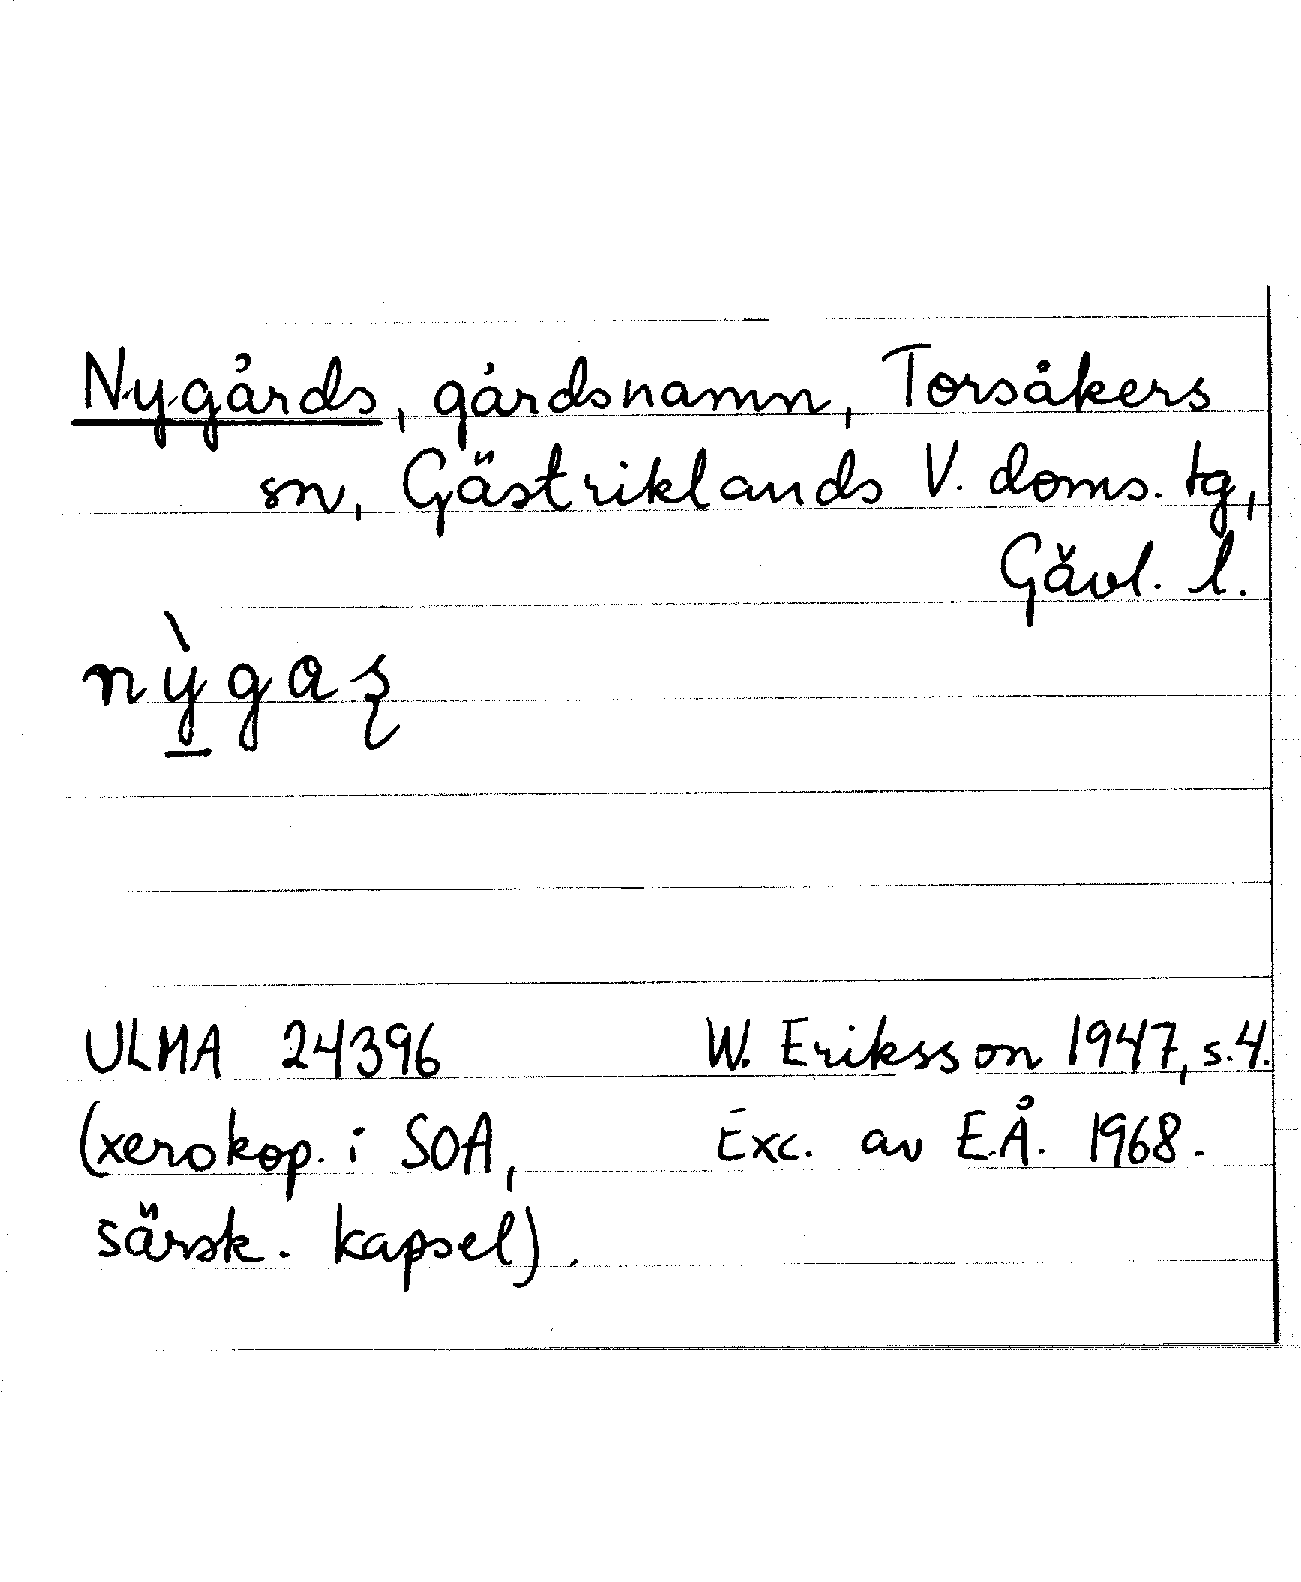 Nygårds, gårdsnamn, Torsåkers
sn, Gästriklands V. doms. tg,
Gävl. l.
nỳ̱gaʂ
ULMA 24396 W. Eriksson 1947, s. 4.
(xerokop. i SOA, Exc. av E.Å. 1968.
särsk. kapsel).